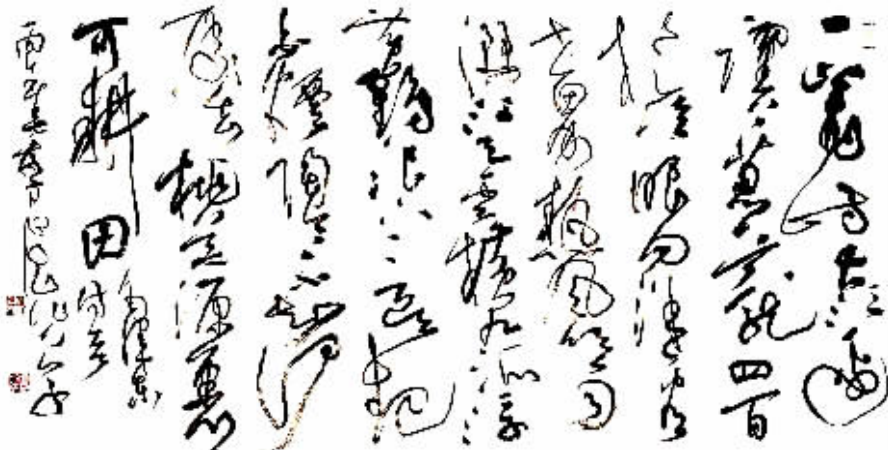 一山飞峙大江边
跃上葱茏四百
旋冷眼向洋看
世界热风吹雨
洒江天云横九派浮
黄鹤浪下三吴起
白烟陶令不知何
处去桃花源里
可耕田
毛泽东